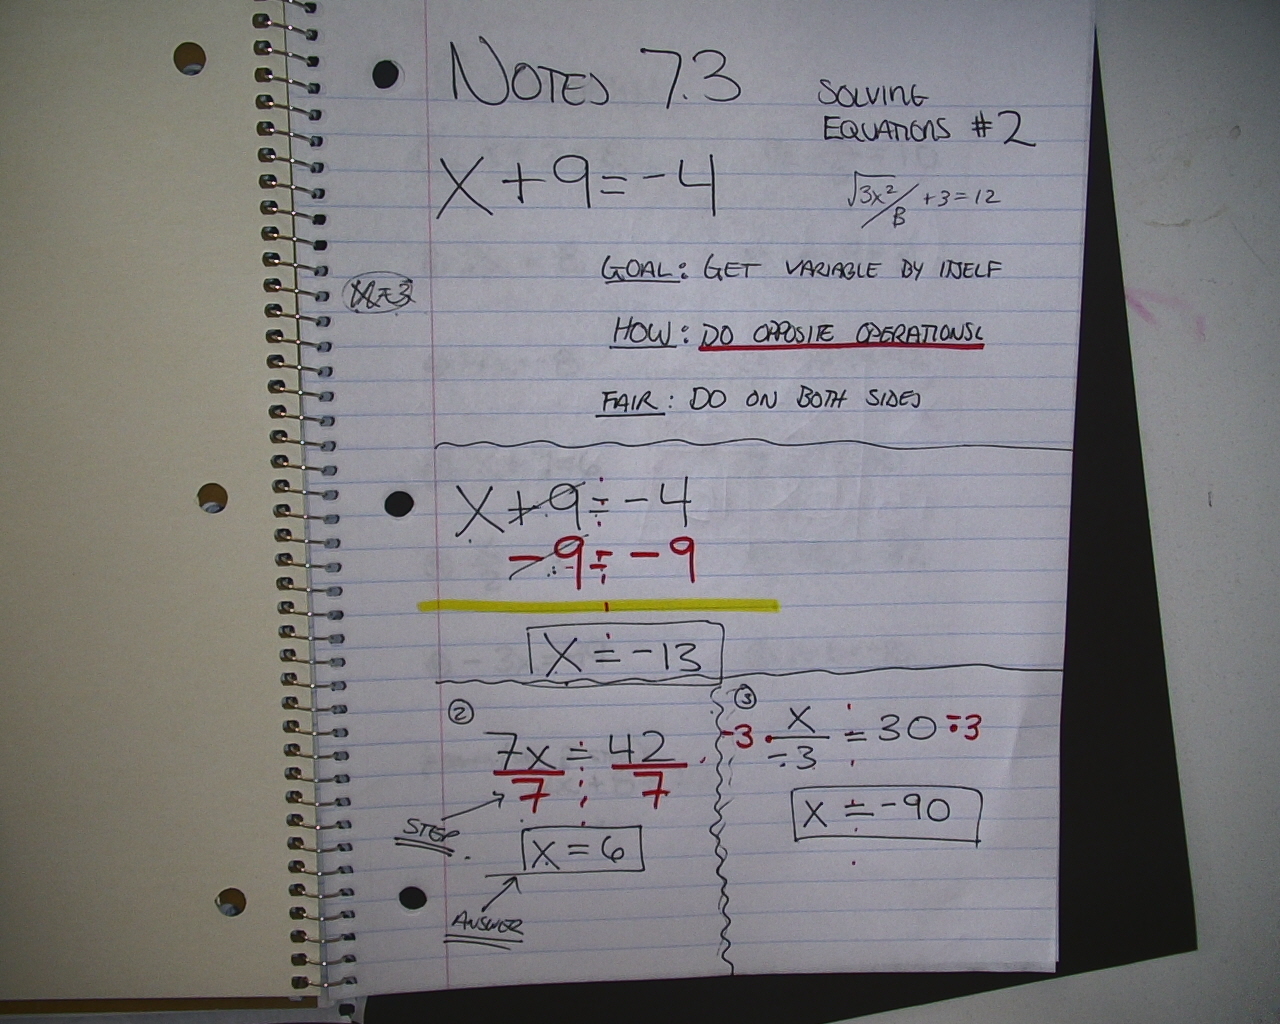 NOTES 7.3
SOLVING
EQUATIONS #2
X + 9 = -4
√3x²/B + 3 = 12
GOAL: GET VARIABLE BY ITSELF
HOW: DO OPPOSITE OPERATIONS
FAIR: DO ON BOTH SIDES
X + 9 = -4
-9 = -9
X = -13
②
7x = 42
7 7
STEP
x = 6
ANSWER
③
-3 · x = 30 · -3
-3
x = -90